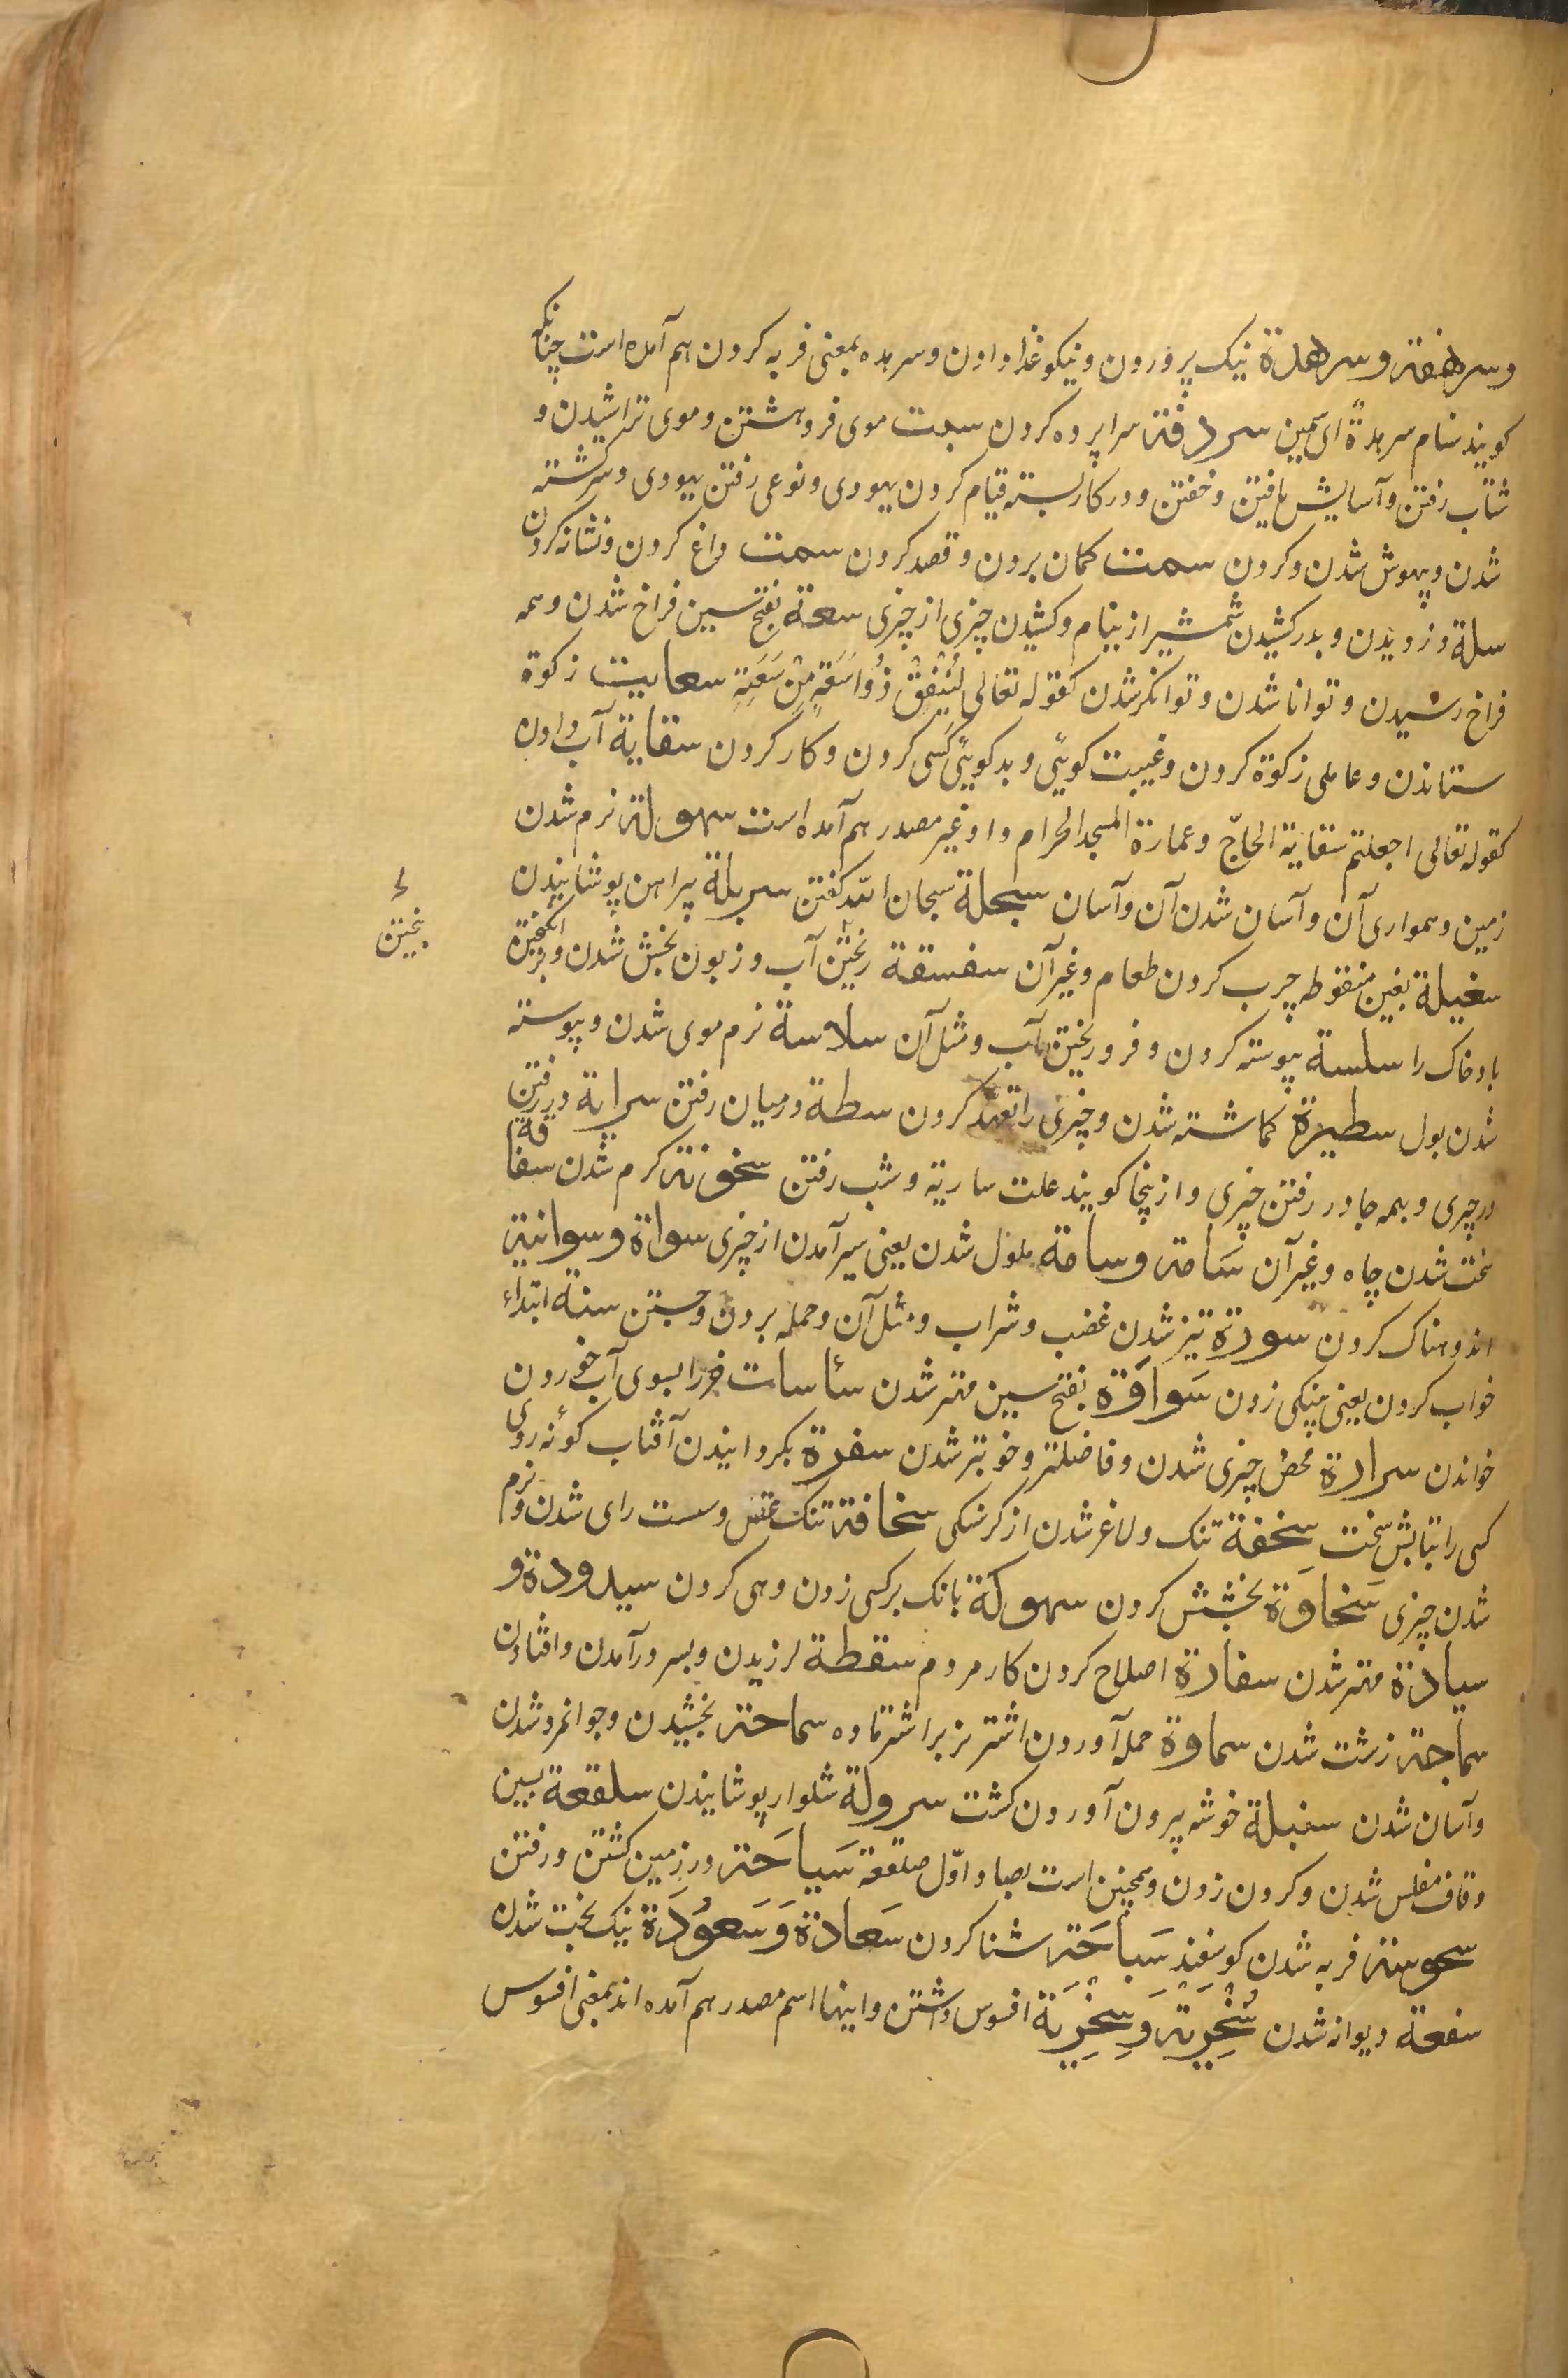 و سرهفة و سرهدة نیک پرورون و نیکو غذا دادن و سرهده بمعنی فربه کردن هم آمده است چنانکه
کویند سنام سرهدةً ای سمین سردقة سراپرده کردن سبت موی فروهشتن و موی تراشیدن و
شتاب رفتن و آسایش یافتن و خفتن و در کار بسته قیام کردن یهودی و نوعی رفتن یهودی و سرکشته
شدن و بیهوش شدن و کردن سمت کمان بردن و قصد کردن سمت داغ کردن و نشانه کردن
سلة دزدیدن و بدر کشیدن شمشیر از نیام و کشیدن چیزی از چیزی سعة بفتح سین فراخ شدن و همه
فراخ رسیدن و توانا شدن و توانکر شدن کقوله تعالی لِیُنْفِقْ ذُوا سَعَةٍ مِنْ سَعَتِهِ سعایت زکوة
ستاندن و عاملی زکوة کردن و غیبت کویئی و بدکویئی کسی کردن و کار کردن سقایة آب دادن
کقوله تعالی اجعلتم سقایة الحاجّ و عمارة المسجد الحرام و او غیر مصدر هم آمده است سهولة نرم شدن
زمین و همواری آن و آسان شدن آن و آسان سبحلة سبحان الله کفتن سربلة پیراهن پوشانیدن
سغبلة بغین منقوطه چرب کردن طعام و غیر آن سفسقة ریختن آب و زبون بخش شدن و برانکیختن
بختین
باد خاک را سلسة پیوسته کردن و فرو ریختن آب و مثل آن سلاسة نرم موی شدن و پیوسته
شدن بول سطیرة کماشته شدن و چیزی را تعهد کردن سطة در میان رفتن سرایة در رفتن
در چیزی و بهمه جا در رفتن چیزی و ازینجا کویند علت ساریة و شب رفتن سخونة کرم شدن سفاقة
سخت شدن چاه و غیر آن سَامة و سامة ملول شدن یعنی سیر آمدن از چیزی سواة و سوانیة
اندوهناک کردن سورة تیز شدن غضب و شراب و مثل آن و حمله بردن و جستن سنة ابتداء
خواب کردن یعنی پینکی زدن سَواوَة بفتح سین مهتر شدن سأسات خر را بسوی آب خوردن
خواندن سرارة محض چیزی شدن و فاضلتر و خوبتر شدن سفرة بکردانیدن آفتاب کونه روی
کسی را بتابش سخت سخفة تنک و لاغر شدن از کرسنکی سخافة تنک عقل و سست رای شدن و نرم
شدن چیزی سَخاوَة بخشش کردن سهوکة بانک بر کسی زدن و هی کردن سیدودة و
سیادة مهتر شدن سفارة اصلاح کردن کار مردم سقطة لرزیدن و بسر در آمدن و افتادن
سماجة زشت شدن سماوة حمله آوردن اشتر نر بر اشتر ماده سماحة بخشیدن و جوانمرد شدن
و آسان شدن سنبلة خوشه بیرون آوردن کشت سرولة شلوار پوشانیدن سلقعة بسین
و قاف مفلس شدن و کردن زدن و همچنین است بصاد اوّل صلقعة سَیاحَة در زمین کشتن و رفتن
سحوسة فربه شدن کوسفند سَباحَة شنا کردن سَعادة وَ سَعوُدَة نیک بخت شدن
سفعة دیوانه شدن سُخْرِیَة وَ سِخْرِیَة افسوس داشتن و اینها اسم مصدر هم آمده اند بمعنی افسوس